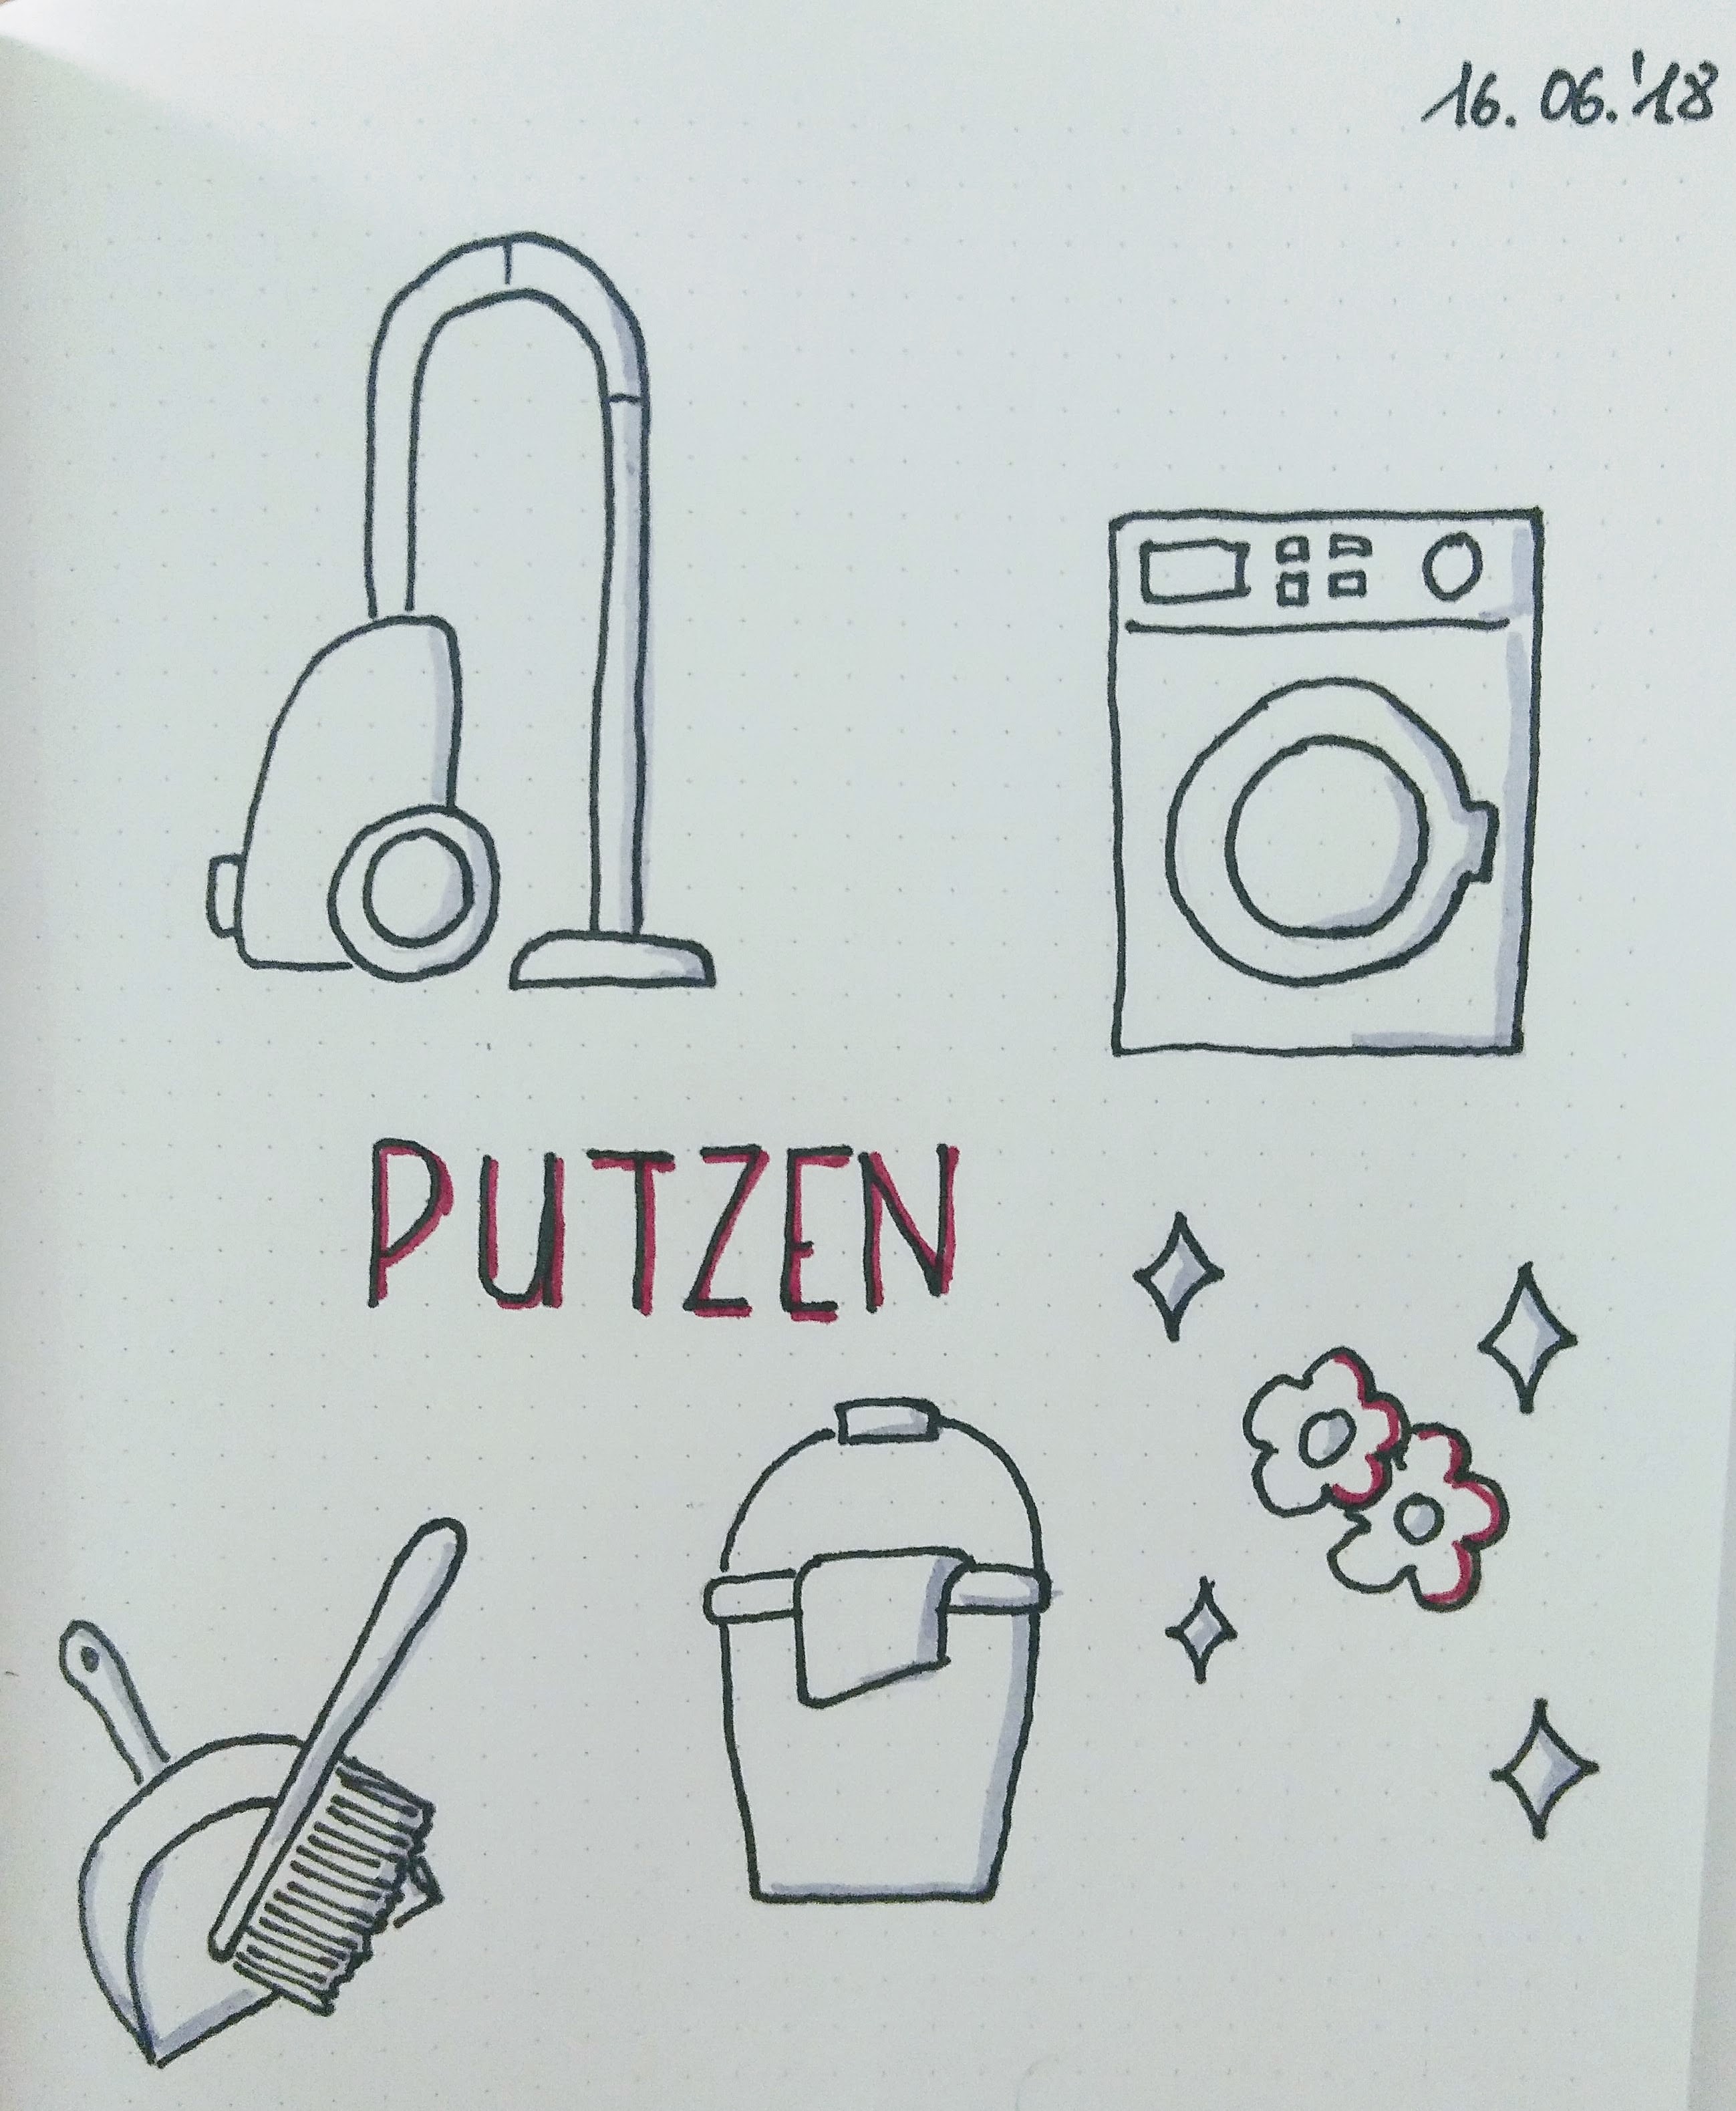 16. 06.'18
PUTZEN